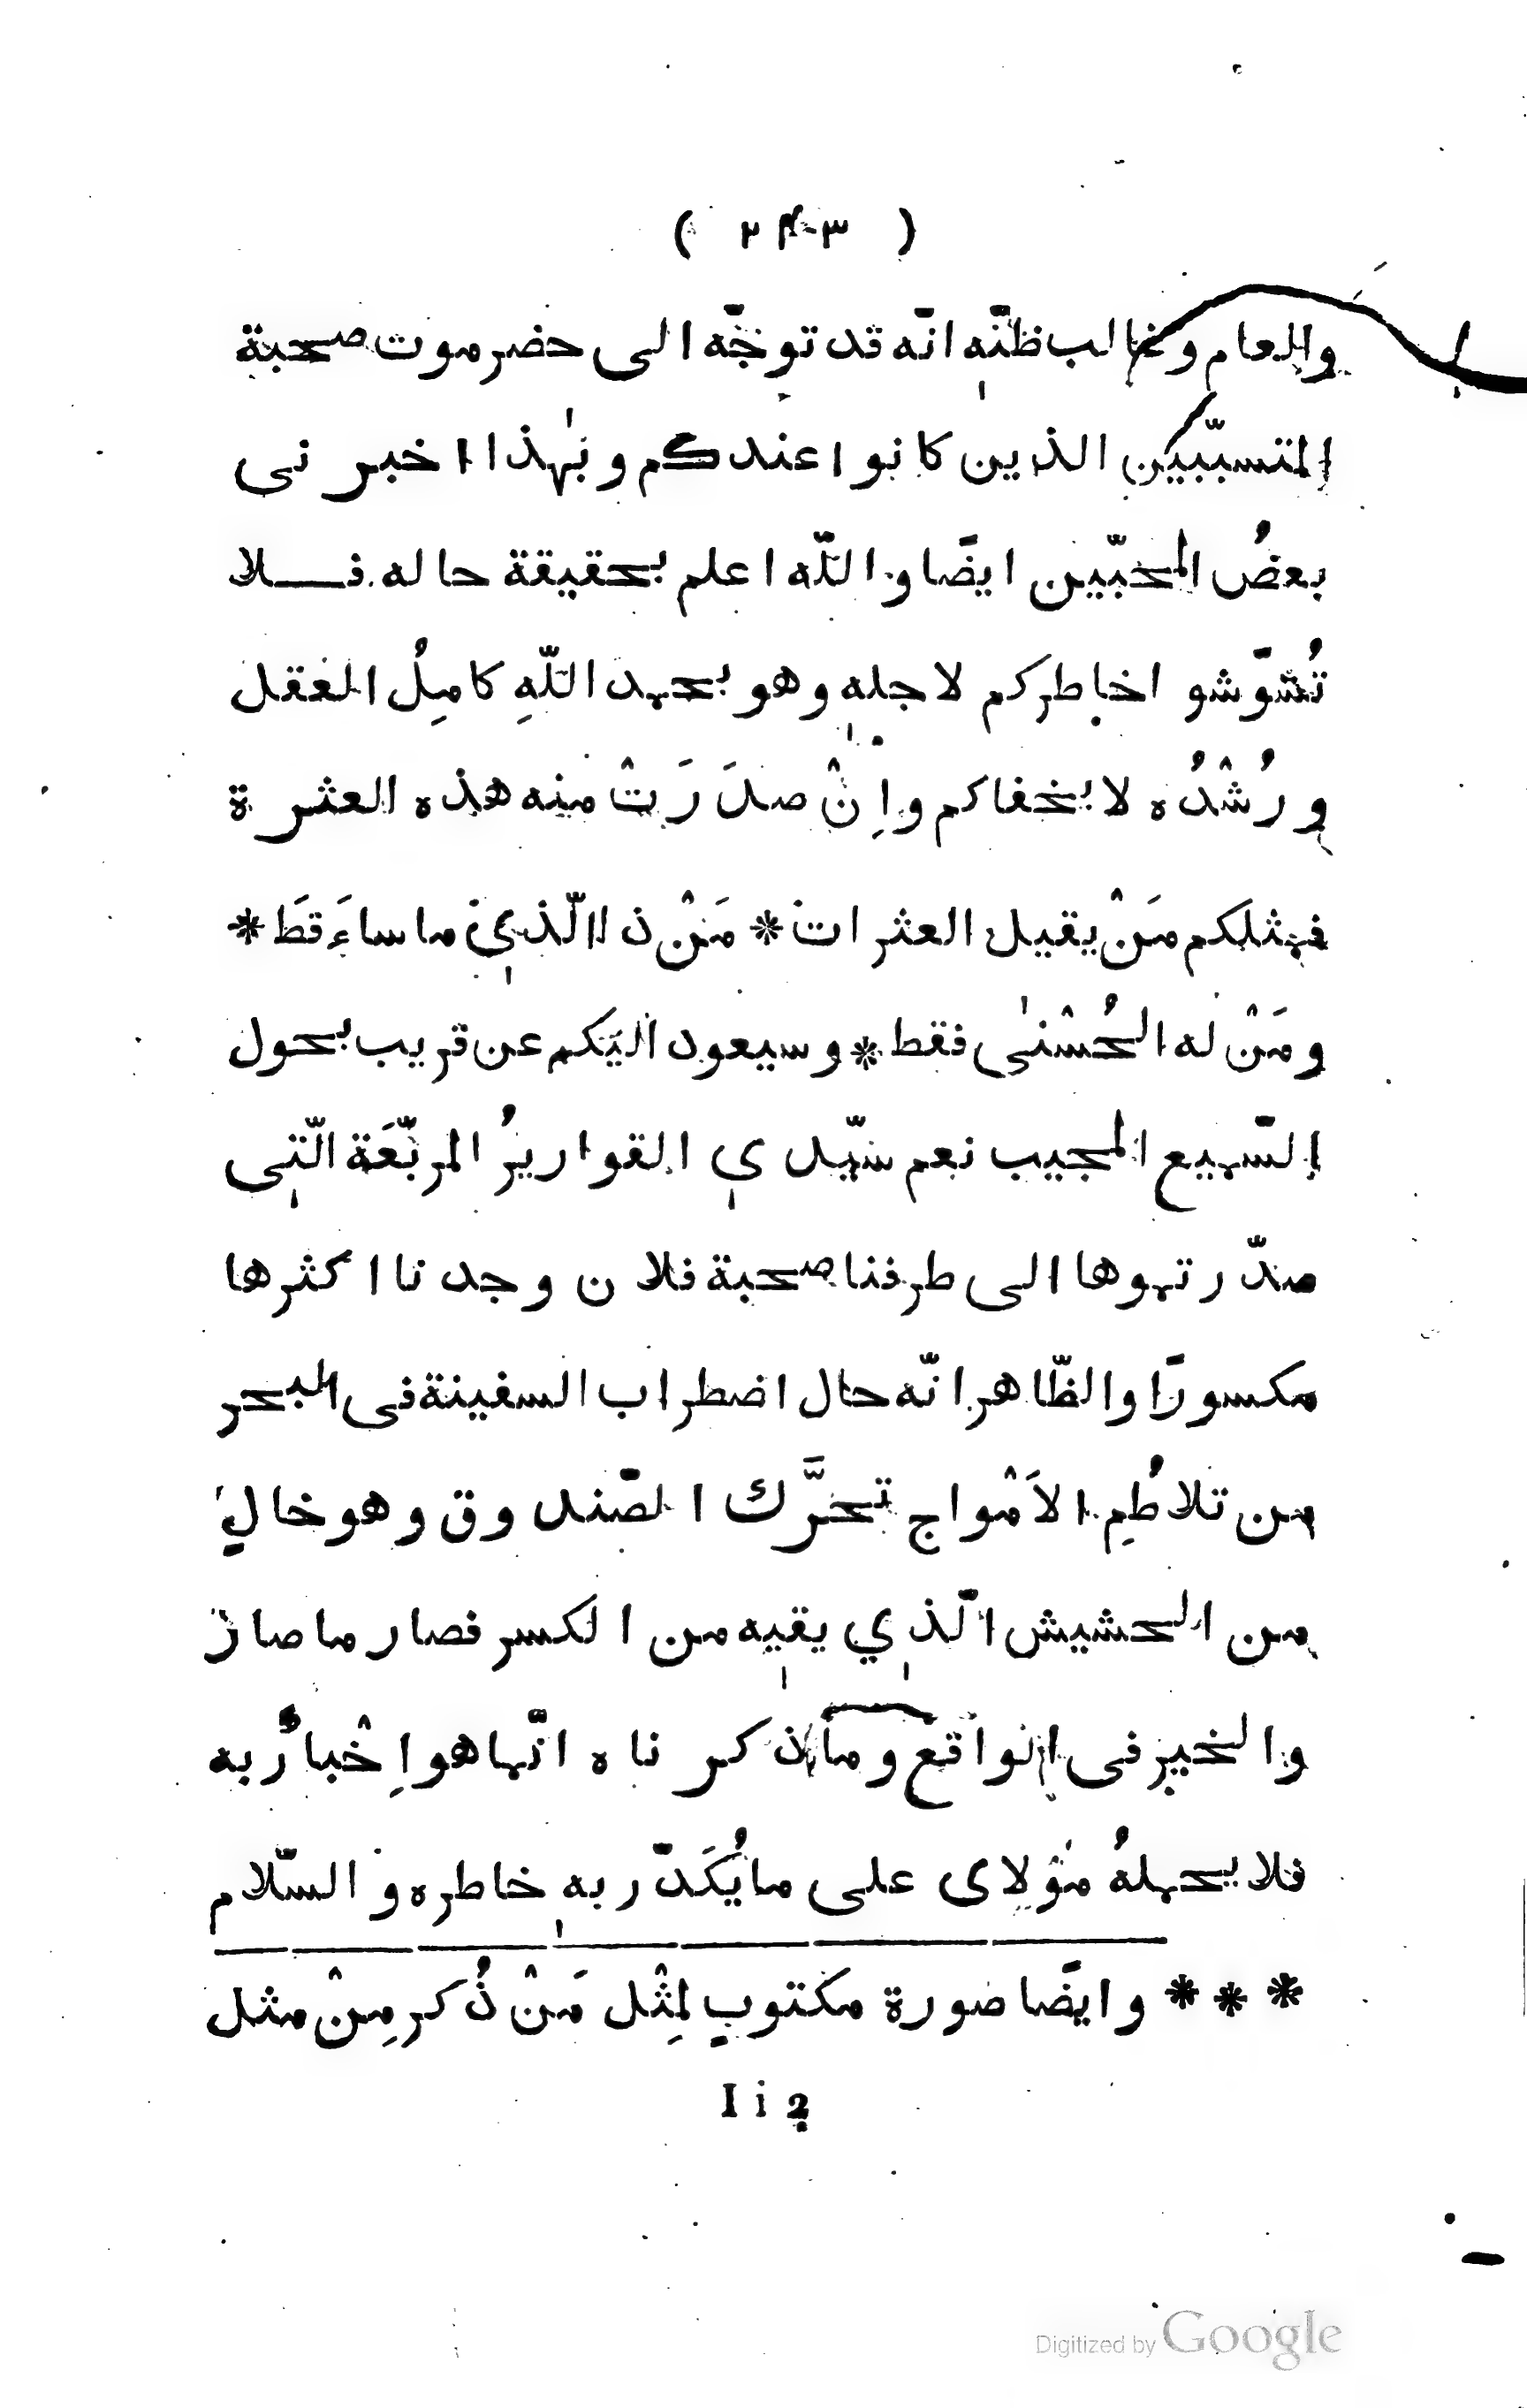 ( ۲۴۳ )
والعام وغالب ظنّه انّه قد توجّه الى حضرموت صحبة
المتسبّبين الذين كانوا عندكم وبهٰذا اخبرنى
بعضُ المحبّين ايضًا واللّه اعلم بحقيقة حاله فـلا
تُشوّشوا خاطركم لاجله وهو بحمد اللّهِ كامِلُ العقل
ورُشْدُه لا يخفاكم واِنْ صدَرَتْ منه هذه العثرة
فمثلكم مَنْ يقيل العثرات * مَنْ ذا الّذي ما ساءَ قطَ *
ومَنْ له الحُسْنىٰ فقط * وسيعود اليكم عن قريب بحول
السّميع المجيب نعم سيّدي القواريرُ المربّعَة الّتى
صدّرتموها الى طرفنا صحبة فلان وجدنا اكثرها
مكسورًا والظّاهر انّه حال اضطراب السفينة فى البحر
من تلاطُمِ الاَمْواج تحرَّك الصّندوق وهو خالٍ
من الحشيش الّذي يقيه من الكسر فصار ما صار
والخير فى الواقع وما ذكرناه انّما هو اِخْبارٌ به
فلا يحملهُ مَوْلاى على ما يُكَدّر به خاطره والسّلام
* * * وايضًا صورة مكتوبٍ لِمِثْل مَنْ ذُكر مِنْ مثل
I i 2
Digitized by Google